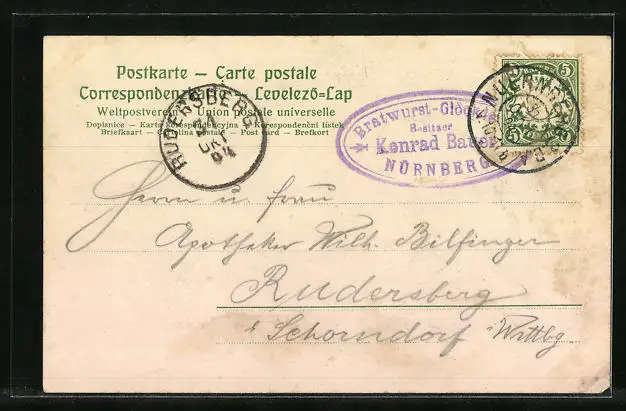 Postkarte — Carte postale
Correspondenz Levelező=Lap
Weltpostverein Union postale universelle
Dopisnice — Karta korespondencyjna Korespondenční lístek
Briefkaart — postala — Post card — Brefkort
RUDERSBERG
OKT
04
Bratwurst-Glöckle
Besitzer
Konrad Bauer
NÜRNBERG
5
NUERNBERG
Herrn u. Frau
Apotheker Wilh. Bilfinger
Rudersberg
b/ Schorndorf Wttbg